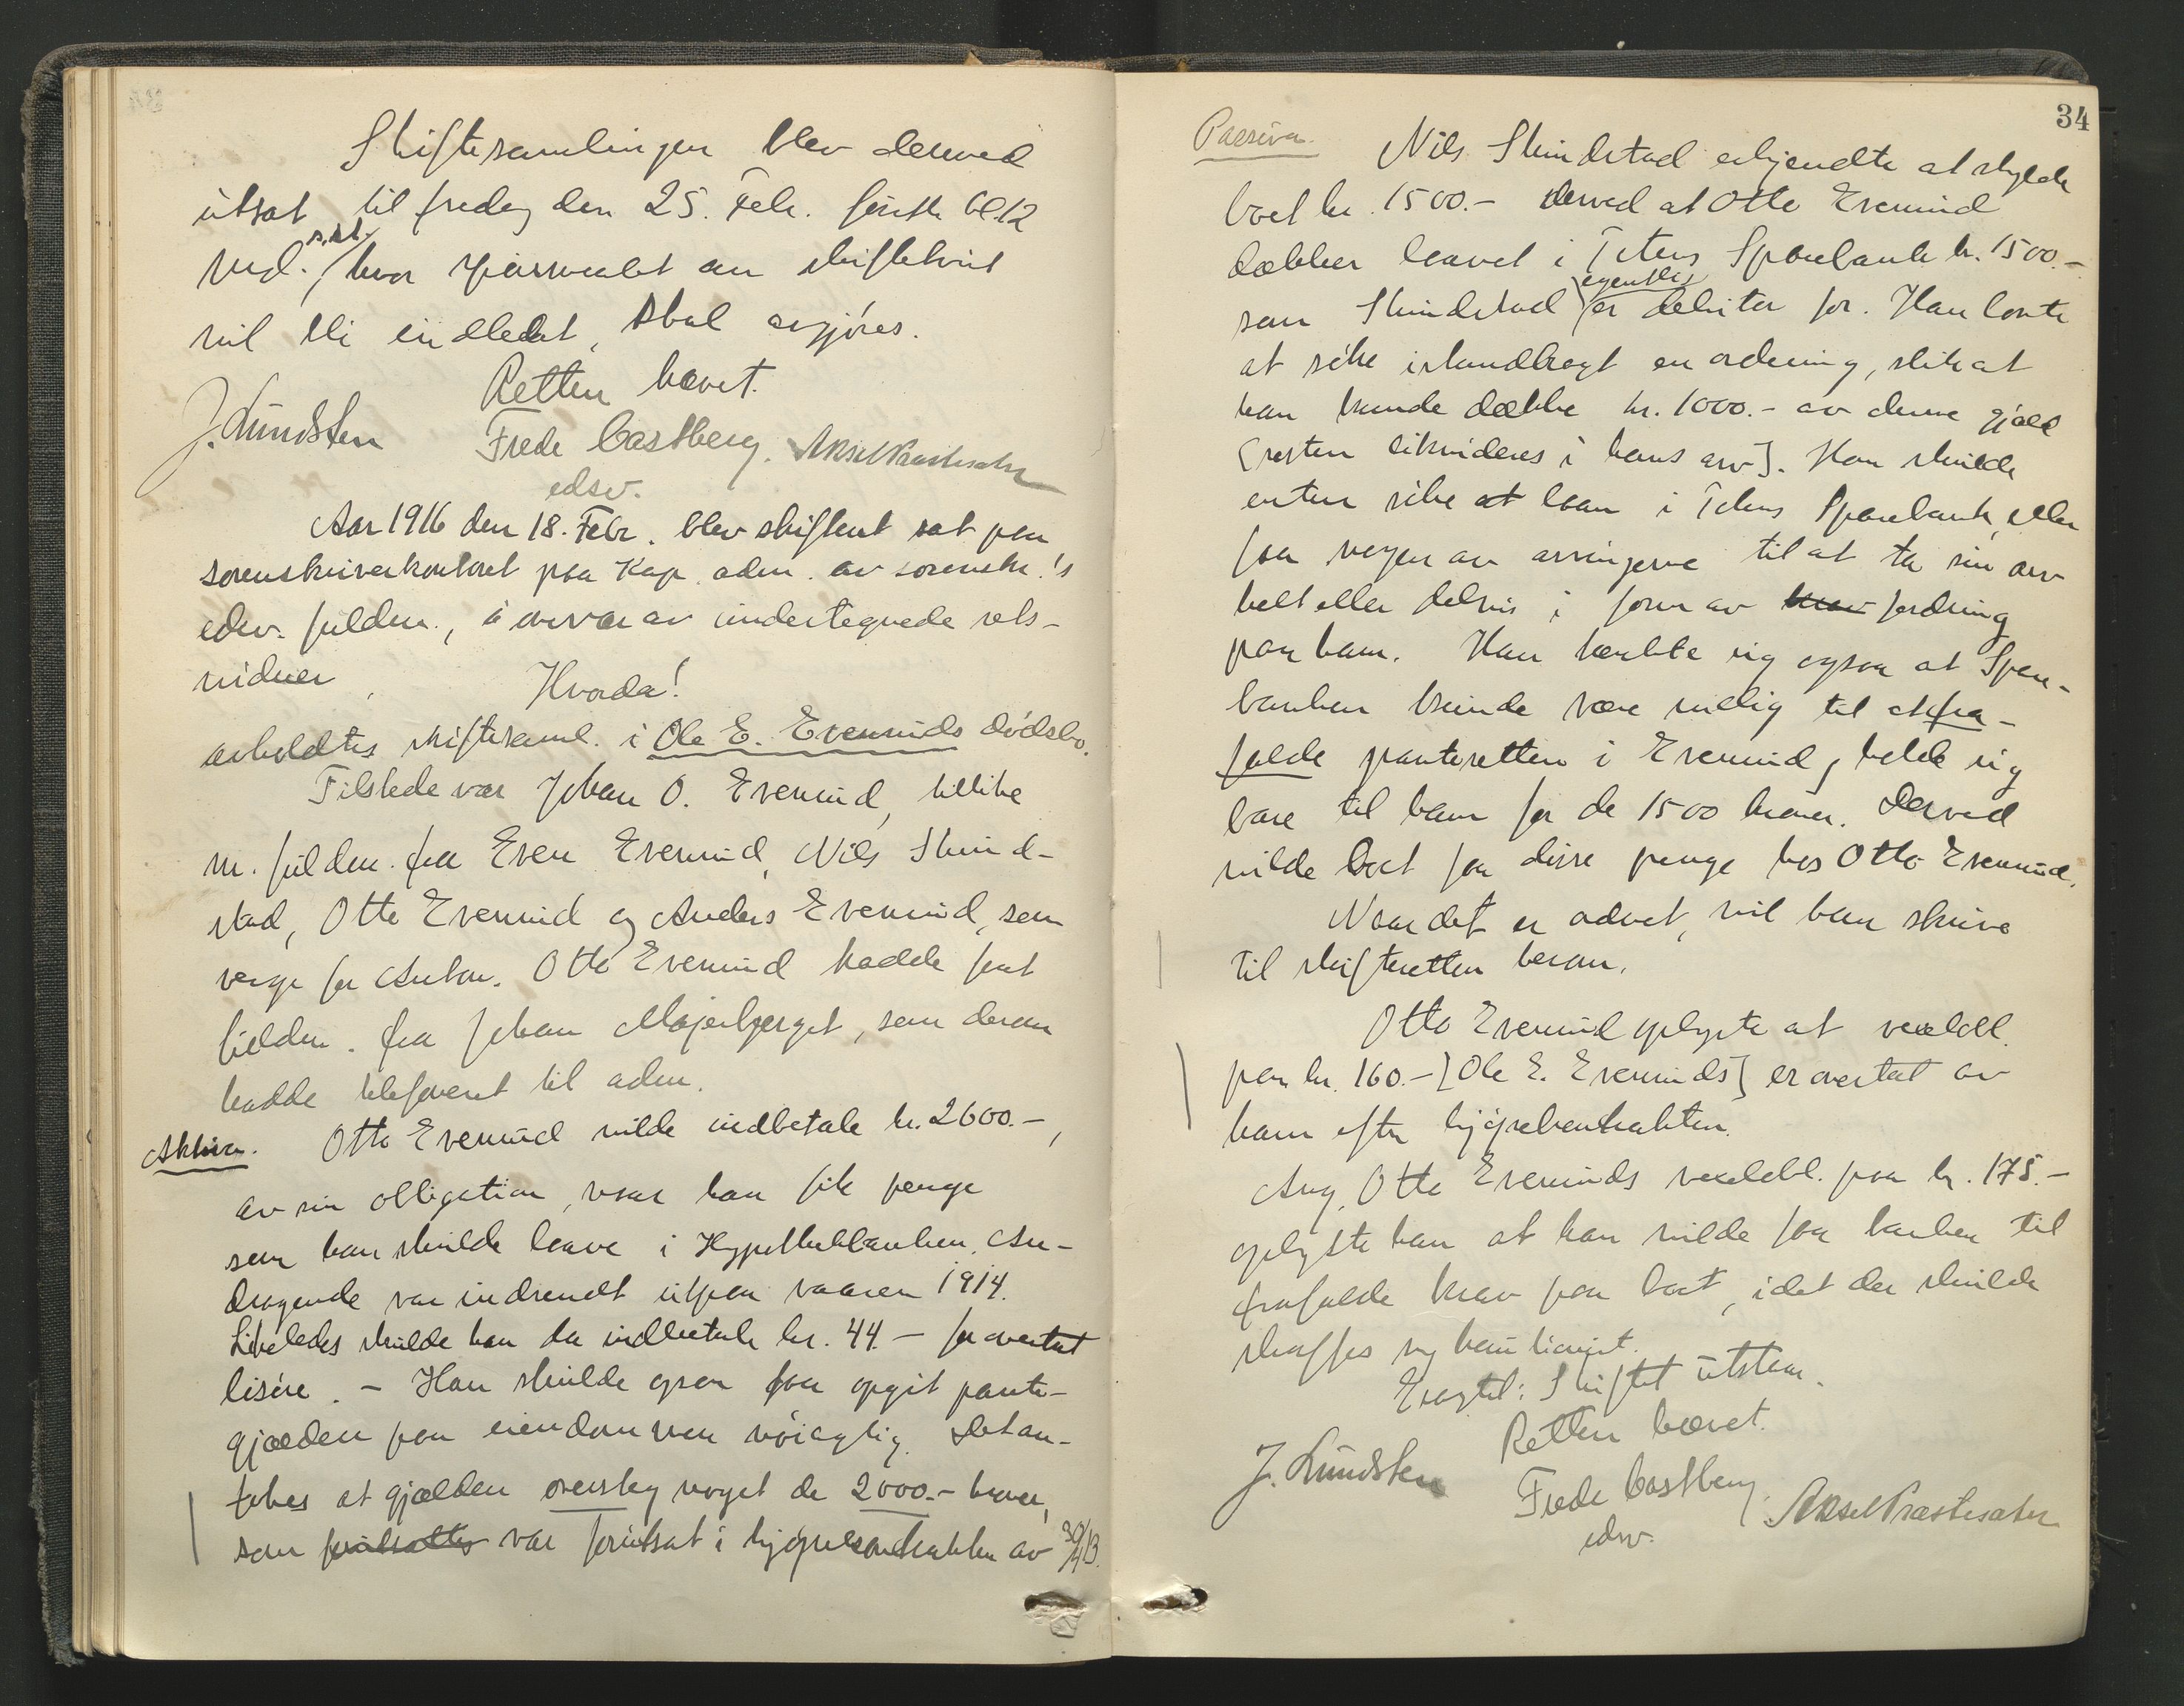 Skiftesamlingen blev derved
utsat til fredag den 25. Febr. førstk. kl. 12
md. s.st., hvor spørsmålet om skiftetvist
vil bli indledet, skal avgjøres.
Retten hævet.
J. Lundsten Frede Castberg. Aksel Præstesæter
edsv.
Aar 1916 den 18. Febr. blev skifteret sat paa
sorenskriverkontoret paa Kap, adm. av sorenskr.'s
edsv. fuldm., i overvær av undertegnede rets-
vidner. Hvorda!
avholdtes skiftesaml. i Ole E. Evenruds dødsbo.
Tilstede var Johan O. Evenrud, tillike
m. fuldm. fra Even Evenrud, Nils Skind-
stad, Otto Evenrud og Anders Evenrud, som
verge for Anton. Otto Evenrud hadde faat
fuldm. fra Johan Majerbjerget, som derom
hadde telefonert til adm.
Aktiva. Otto Evenrud vilde indbetale kr. 2600.-,
av sin obligation, naar han fik penge
som han skulde laane i Hypothekbanken. An-
dragende var indsendt utpaa vaaren 1914.
Likeledes skulde han da indbetale kr. 44.- for overtat
løsøre. - Han skulde ogsaa faa opgit pante-
gjælden paa eiendommen nøiagtig. Det an-
tokes at gjælden oversteg noget de 2000.- kroner,
som forutsattes var forutsat i kjøpekontrakten av 30/4 13.
34
Passiva. Nils Skindstad erkjendte at skylde
boet kr. 1500.- derved at Otto Evenrud
dækker laanet i Totens Sparebank kr. 1500.-
som Skindstad egentlig er debitor for. Han lovte
at søke istandbragt en ordning, slik at
han kunde dække kr. 1000.- av denne gjæld
[resten likvideres i hans arv]. Han skulde
enten søke at laan i Totens Sparebank, eller
faa nogen av arvingerne til at ta sin arv
helt eller delvis i form av krav fordring
paa ham. Han tænkte sig ogsaa at Spare-
banken kunde være villig til at fra-
falde panteretten i Evenrud, holde sig
bare til ham for de 1500 kroner. Derved
vilde boet faa disse penge hos Otto Evenrud.
Naar det er ordnet, vil han skrive
til skifteretten herom.
Otto Evenrud oplyste at vexelobl.
paa kr. 160.- [Ole E. Evenruds] er overtat av
ham efter kjøpekontrakten.
Ang. Otto Evenruds vexelobl. paa kr. 175.-
oplyste han at han vilde faa banken til
frafalde krav paa boet, idet der skulde
skaffes ny kautionist.
Eragtet: Skiftet utstaar.
Retten hævet.
J. Lundsten Frede Castberg. Aksel Præstesæter
edsv.